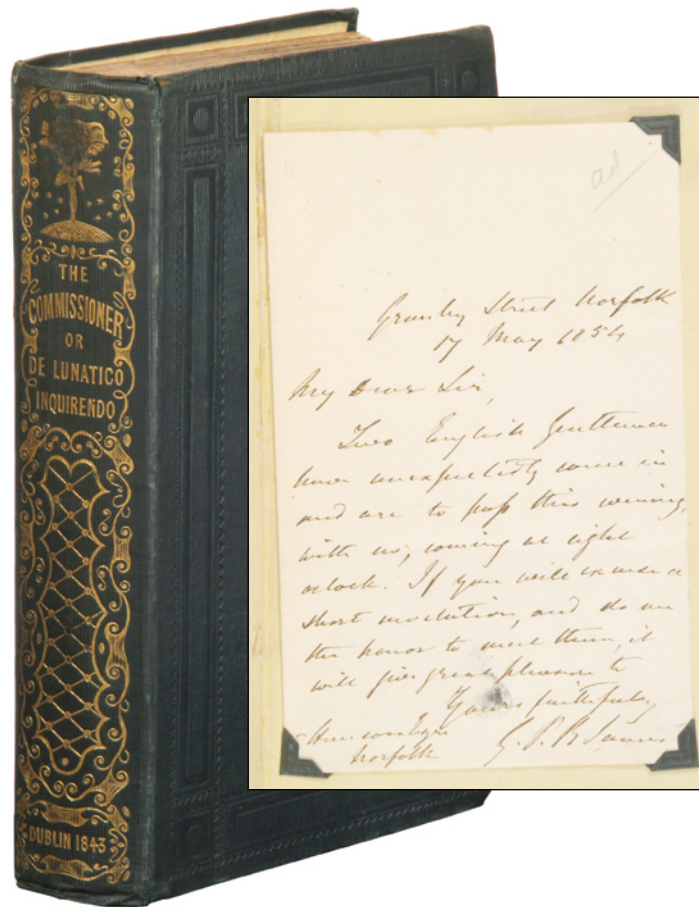 THE
COMMISSIONER
OR
DE LUNATICO
INQUIRENDO
DUBLIN 1843
ad
Granby Street Norfolk
17 May 1854
My Dear Sir,
Two English Gentlemen
have unexpectedly come in
and are to pass this evening
with us, coming at eight
oclock. If you will excuse a
short invitation, and do me
the honor to meet them, it
will give great pleasure to
Yours faithfully
G. P. R James
Norfolk